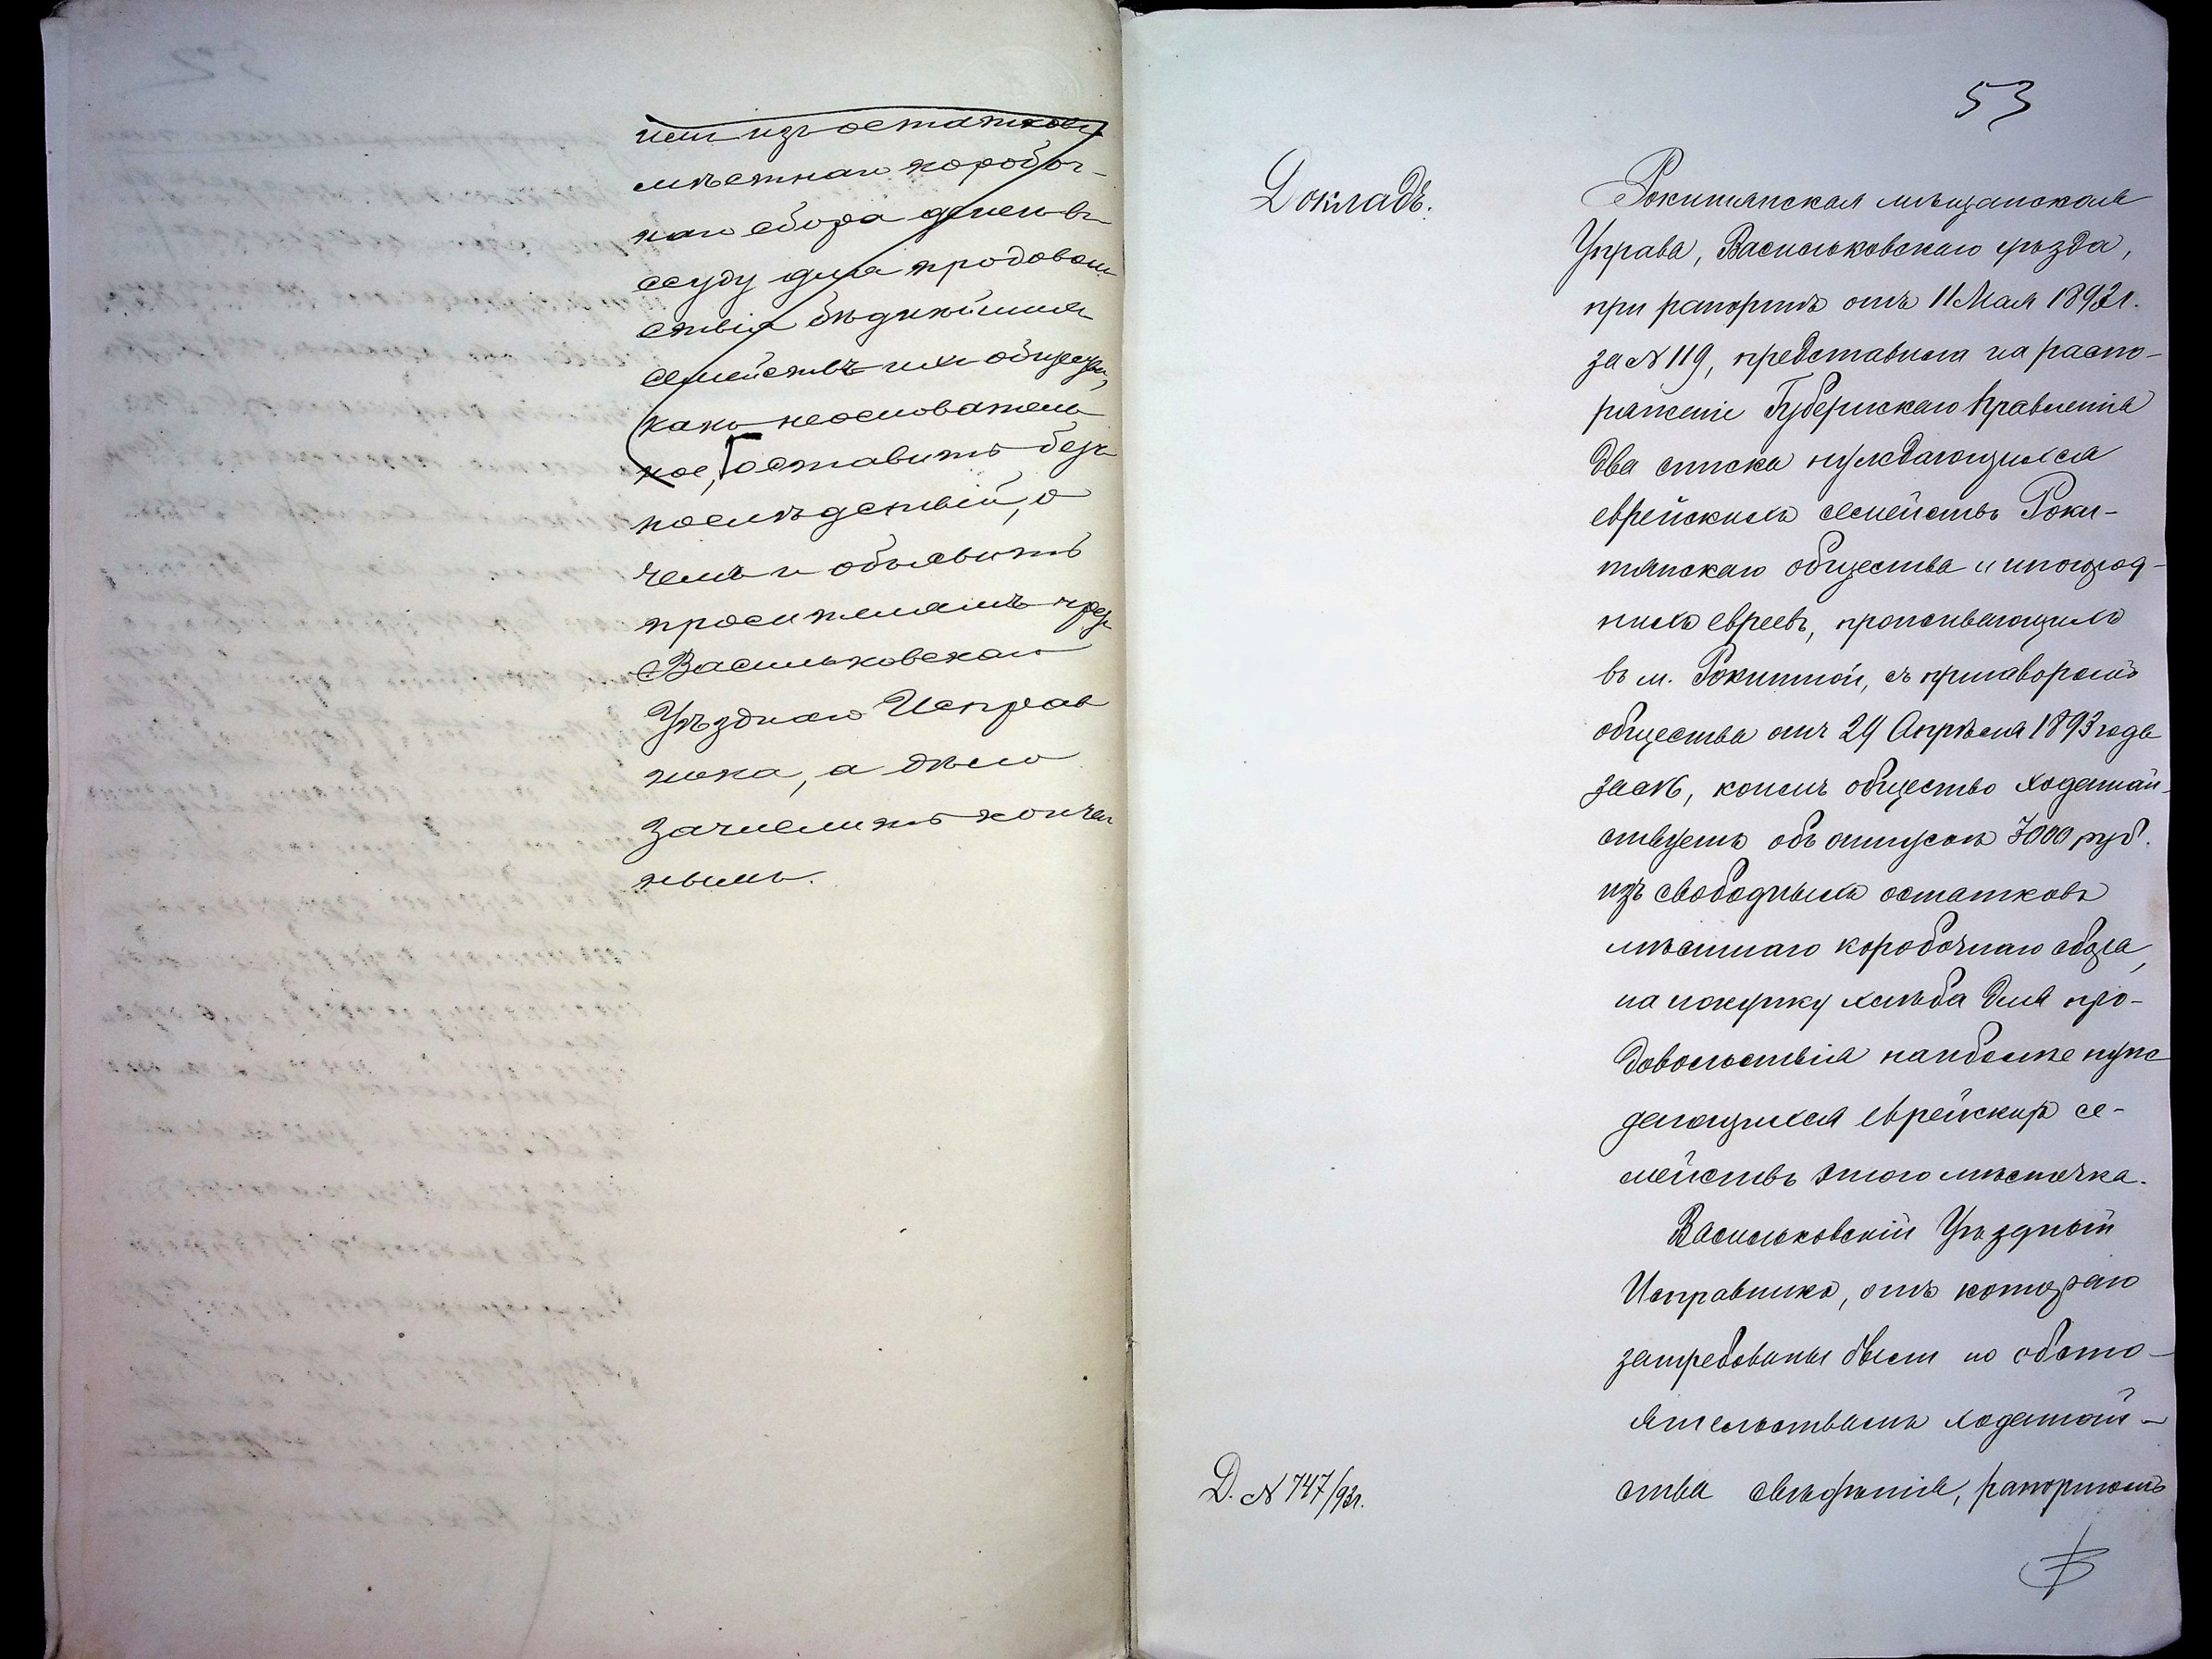 или изъ остатковъ
мѣстнаго коробоч-
наго сбора денежн
ссуду для продоволь
ствія бѣднѣйшихъ
семействъ ихъ общества,
какъ неоснователь
ное, оставить безъ
послѣдствій, о
чемъ и объявить
просителямъ чрезъ
Васильковскаго
Уѣзднаго Исправ
ника, а дѣло
зачислить кончен
нымъ.
53
Докладъ.
Рокитянская мѣщанская
Управа, Васильковскаго уѣзда,
при рапортѣ отъ 11 Мая 1893 г.
за № 119, представила на распо-
ряженіе Губернскаго Правленія
два списка нуждающихся
еврейскихъ семействъ Роки-
тянскаго общества и иногород-
нихъ евреевъ, проживающихъ
въ м. Рокитной, съ приговоромъ
общества отъ 29 Апрѣля 1893 года
за № 6, коимъ общество ходатай-
ствуетъ объ отпускѣ 3000 руб.
изъ свободныхъ остатковъ
мѣстнаго коробочнаго сбора,
на покупку хлѣба для про-
довольствія наиболѣе нуж
дающихся еврейскихъ се-
мействъ этого мѣстечка.
Васильковскій Уѣздный
Исправникъ, отъ котораго
затребованы были по обсто-
ятельствамъ ходатай-
ства свѣдѣнія, рапортомъ
Д. № 747/93 г.